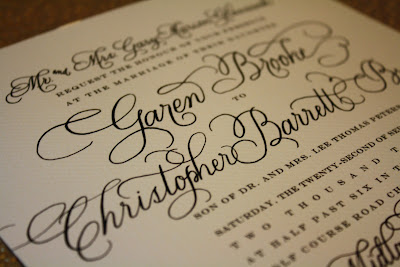 Mr. and Mrs. Gary
REQUEST THE HONOUR OF YOUR PRESENCE
AT THE MARRIAGE OF THEIR DAUGHTER
Garen Brooke
TO
Christopher Barrett B
SON OF DR. AND MRS. LEE THOMAS PETER
SATURDAY, THE TWENTY-SECOND OF SE
TWO THOUSAND T
AT HALF PAST SIX IN T
HALF COURSE ROAD CH
Midlo